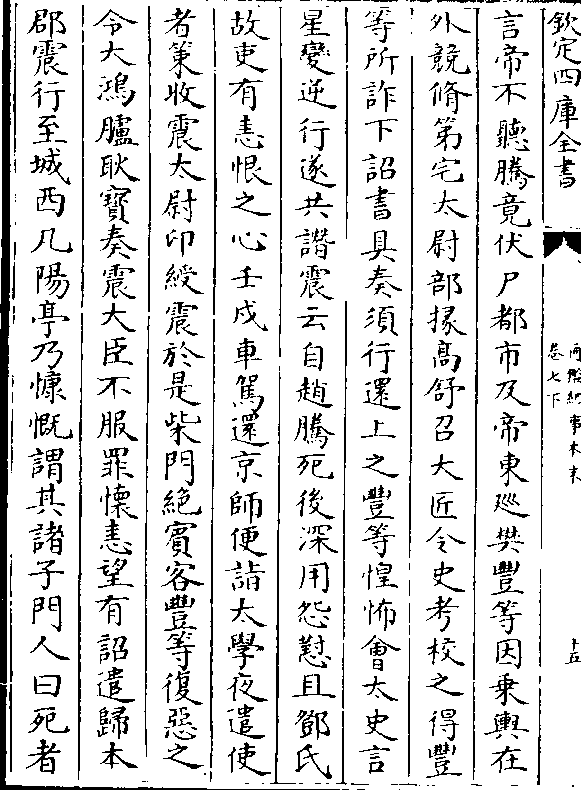 欽定四庫全書
通鑑紀事本末
卷七下
十五
言帝不聽騰竟伏尸都市及帝東廵樊豐等因乗輿在
外競脩第宅太尉部掾髙舒召大匠令史考校之得豐
等所詐下詔書具奏須行還上之豐等惶怖㑹太史言
星變逆行遂共譖震云自趙騰死後深用怨懟且鄧氏
故吏有恚恨之心壬戌車駕還京師便詣太學夜遣使
者策收震太尉印綬震於是柴門絶賓客豐等復惡之
令大鴻臚耿寳奏震大臣不服罪懐恚望有詔遣歸本
郡震行至城西几陽亭乃慷慨謂其諸子門人曰死者